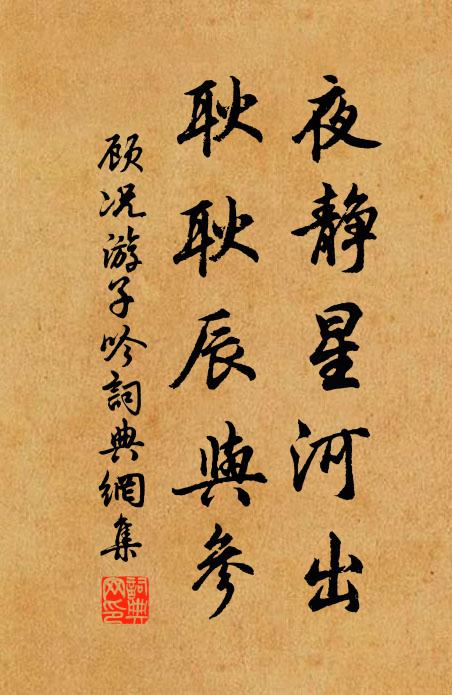 夜静星河出
耿耿辰與參
顾况游子吟詞典網集
詞典網印